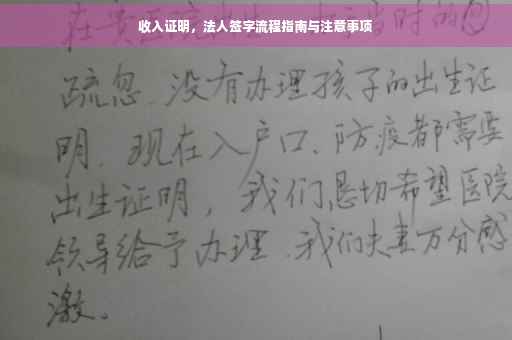 收入证明，法人签字流程指南与注意事项
疏忽、没有办理孩子的出生证
明．现在入户口、防疫都需要
出生证明，我们恳切希望医院
领导给予办理．我们夫妻万分感
激。